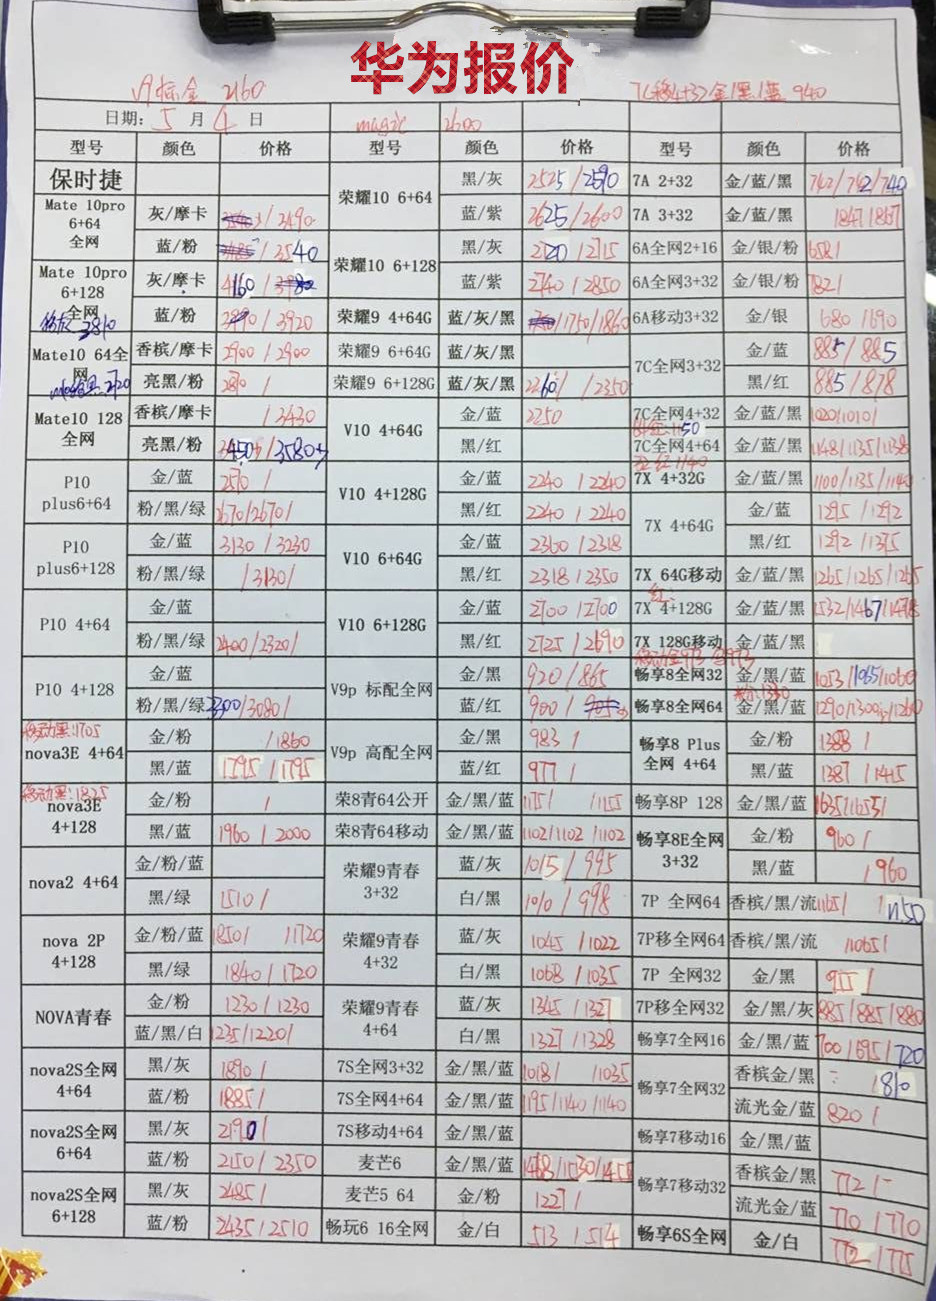 华为报价
V9标金 2160
7C移4+32金/黑/蓝 940
日期: 5 月 4 日 magic 2600
型号 颜色 价格 型号 颜色 价格 型号 颜色 价格
保时捷 荣耀10 6+64 黑/灰 2525/2590 7A 2+32 金/蓝/黑 742/742/740
Mate 10pro 6+64 全网 灰/摩卡 /3490 蓝/紫 2625/2600 7A 3+32 金/蓝/黑 /847/867
蓝/粉 /3540 荣耀10 6+128 黑/灰 2720/2715 6A全网2+16 金/银/粉 658/
Mate 10pro 6+128 全网 灰/摩卡 4160/ 蓝/紫 2740/2850 6A全网3+32 金/银/粉 782/
蓝/粉 3890/3920 荣耀9 4+64G 蓝/灰/黑 /1750/1860 6A移动3+32 金/银 680/690
3810
Mate10 64全网 香槟/摩卡 2900/2900 荣耀9 6+64G 蓝/灰/黑 7C全网3+32 金/蓝 885/885
亮黑/粉 荣耀9 6+128G 蓝/灰/黑 2260/ /2350 黑/红 885/878
Mate10 128 全网 香槟/摩卡 /3430 V10 4+64G 金/蓝 2250 7C全网4+32 金/蓝/黑 1020/1010/
亮黑/粉 3450/3580 黑/红 7C全网4+64 金/蓝/黑 1148/1135/1138
P10 plus6+64 金/蓝 2570/ V10 4+128G 金/蓝 2240/2240 7X 4+32G 金/蓝/黑 1100/1135/1140
粉/黑/绿 2670/2670/ 黑/红 2240/2240 7X 4+64G 金/蓝 1295/1292
P10 plus6+128 金/蓝 3130/3230 V10 6+64G 金/蓝 2360/2318 黑/红 1292/1375
粉/黑/绿 /3130/ 黑/红 2318/2350 7X 64G移动 金/蓝/黑 1265/1265/1265
P10 4+64 金/蓝 V10 6+128G 金/蓝 2700/2700 7X 4+128G 金/蓝/黑 1532/1467/1478
粉/黑/绿 2400/2320/ 黑/红 2725/2690 7X 128G移动 金/蓝/黑
P10 4+128 金/蓝 V9p 标配全网 金/黑 920/865 畅享8全网32 金/黑/蓝 1053/1065/1060
粉/黑/绿 3300/3080/ 蓝/红 900/ 畅享8全网64 金/黑/蓝 1290/1300/1260
移动黑:1705
nova3E 4+64 金/粉 /1860 V9p 高配全网 金/黑 983/ 畅享8 Plus 全网 4+64 金/粉 1388/
黑/蓝 1795/1795 蓝/红 977/ 黑/蓝 1387/1415
移动黑:1825
nova3E 4+128 金/粉 / 荣8青64公开 金/黑/蓝 1151/ /1155 畅享8P 128 金/黑/蓝 1635/1655/
黑/蓝 1960/2000 荣8青64移动 金/黑/蓝 1102/1102/1102 畅享8E全网 3+32 金/粉 960/
nova2 4+64 金/粉/蓝 荣耀9青春 3+32 蓝/灰 1015/995 黑/蓝 /960
黑/绿 1510/ 白/黑 1010/998 7P 全网64 香槟/黑/流 1165/ /1150
nova 2P 4+128 金/粉/蓝 1850/ /1720 荣耀9青春 4+32 蓝/灰 1045/1022 7P移全网64 香槟/黑/流 /1065/
黑/绿 1840/1720 白/黑 1068/1035 7P 全网32 金/黑 955/
NOVA青春 金/粉 1230/1230 荣耀9青春 4+64 蓝/灰 1345/1327 7P移全网32 金/黑/灰 885/885/880
蓝/黑/白 1235/1220/ 白/黑 1327/1328 畅享7全网16 金/黑/蓝 700/695/720
nova2S全网 4+64 黑/灰 1890/ 7S全网3+32 金/黑/蓝 1018/ /1035 畅享7全网32 香槟金/黑 /810
蓝/粉 1885/ 7S全网4+64 金/黑/蓝 1195/1140/1140 流光金/蓝 820/
nova2S全网 6+64 黑/灰 2190/ 7S移动4+64 金/黑/蓝 畅享7移动16 金/黑/蓝
蓝/粉 2150/2350 麦芒6 金/黑/蓝 1468/1530/1455 畅享7移动32 香槟金/黑 772/-
nova2S全网 6+128 黑/灰 2485/ 麦芒5 64 金/粉 1227/ 流光金/蓝 770/770
蓝/粉 2435/2510 畅玩6 16全网 金/白 513/514 畅享6S全网 金/白 772/775